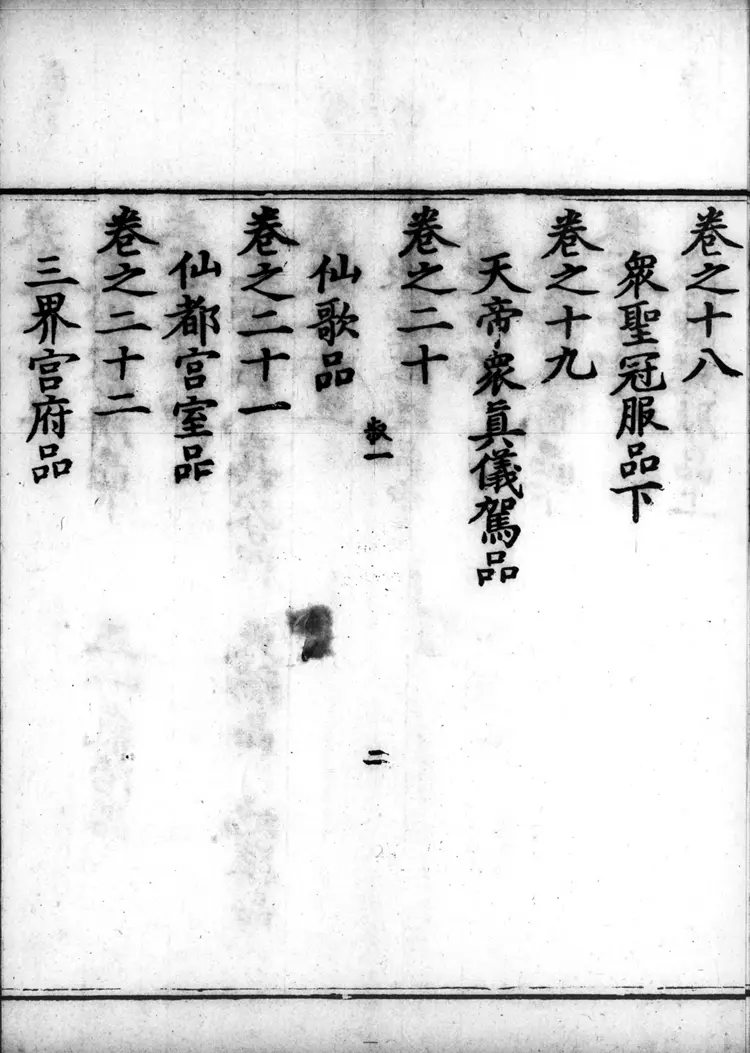 卷之十八
衆聖冠服品下
卷之十九
天帝衆眞儀駕品
卷之二十
仙歌品
叔一
二
卷之二十一
仙都宫室品
卷之二十二
三界宫府品